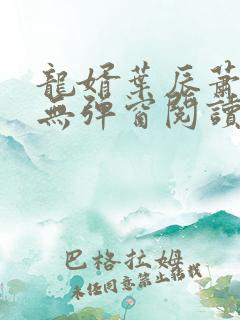 龍婿葉辰蕭
無彈窗閱讀
巴格拉姆
未經同意禁止轉載